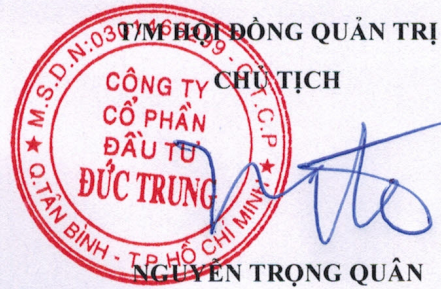 T/M HỘI ĐỒNG QUẢN TRỊ
CHỦ TỊCH
CÔNG TY
CỔ PHẦN
ĐẦU TƯ
ĐỨC TRUNG
Q.TÂN BÌNH - T.P HỒ CHÍ MINH
NGUYỄN TRỌNG QUÂN